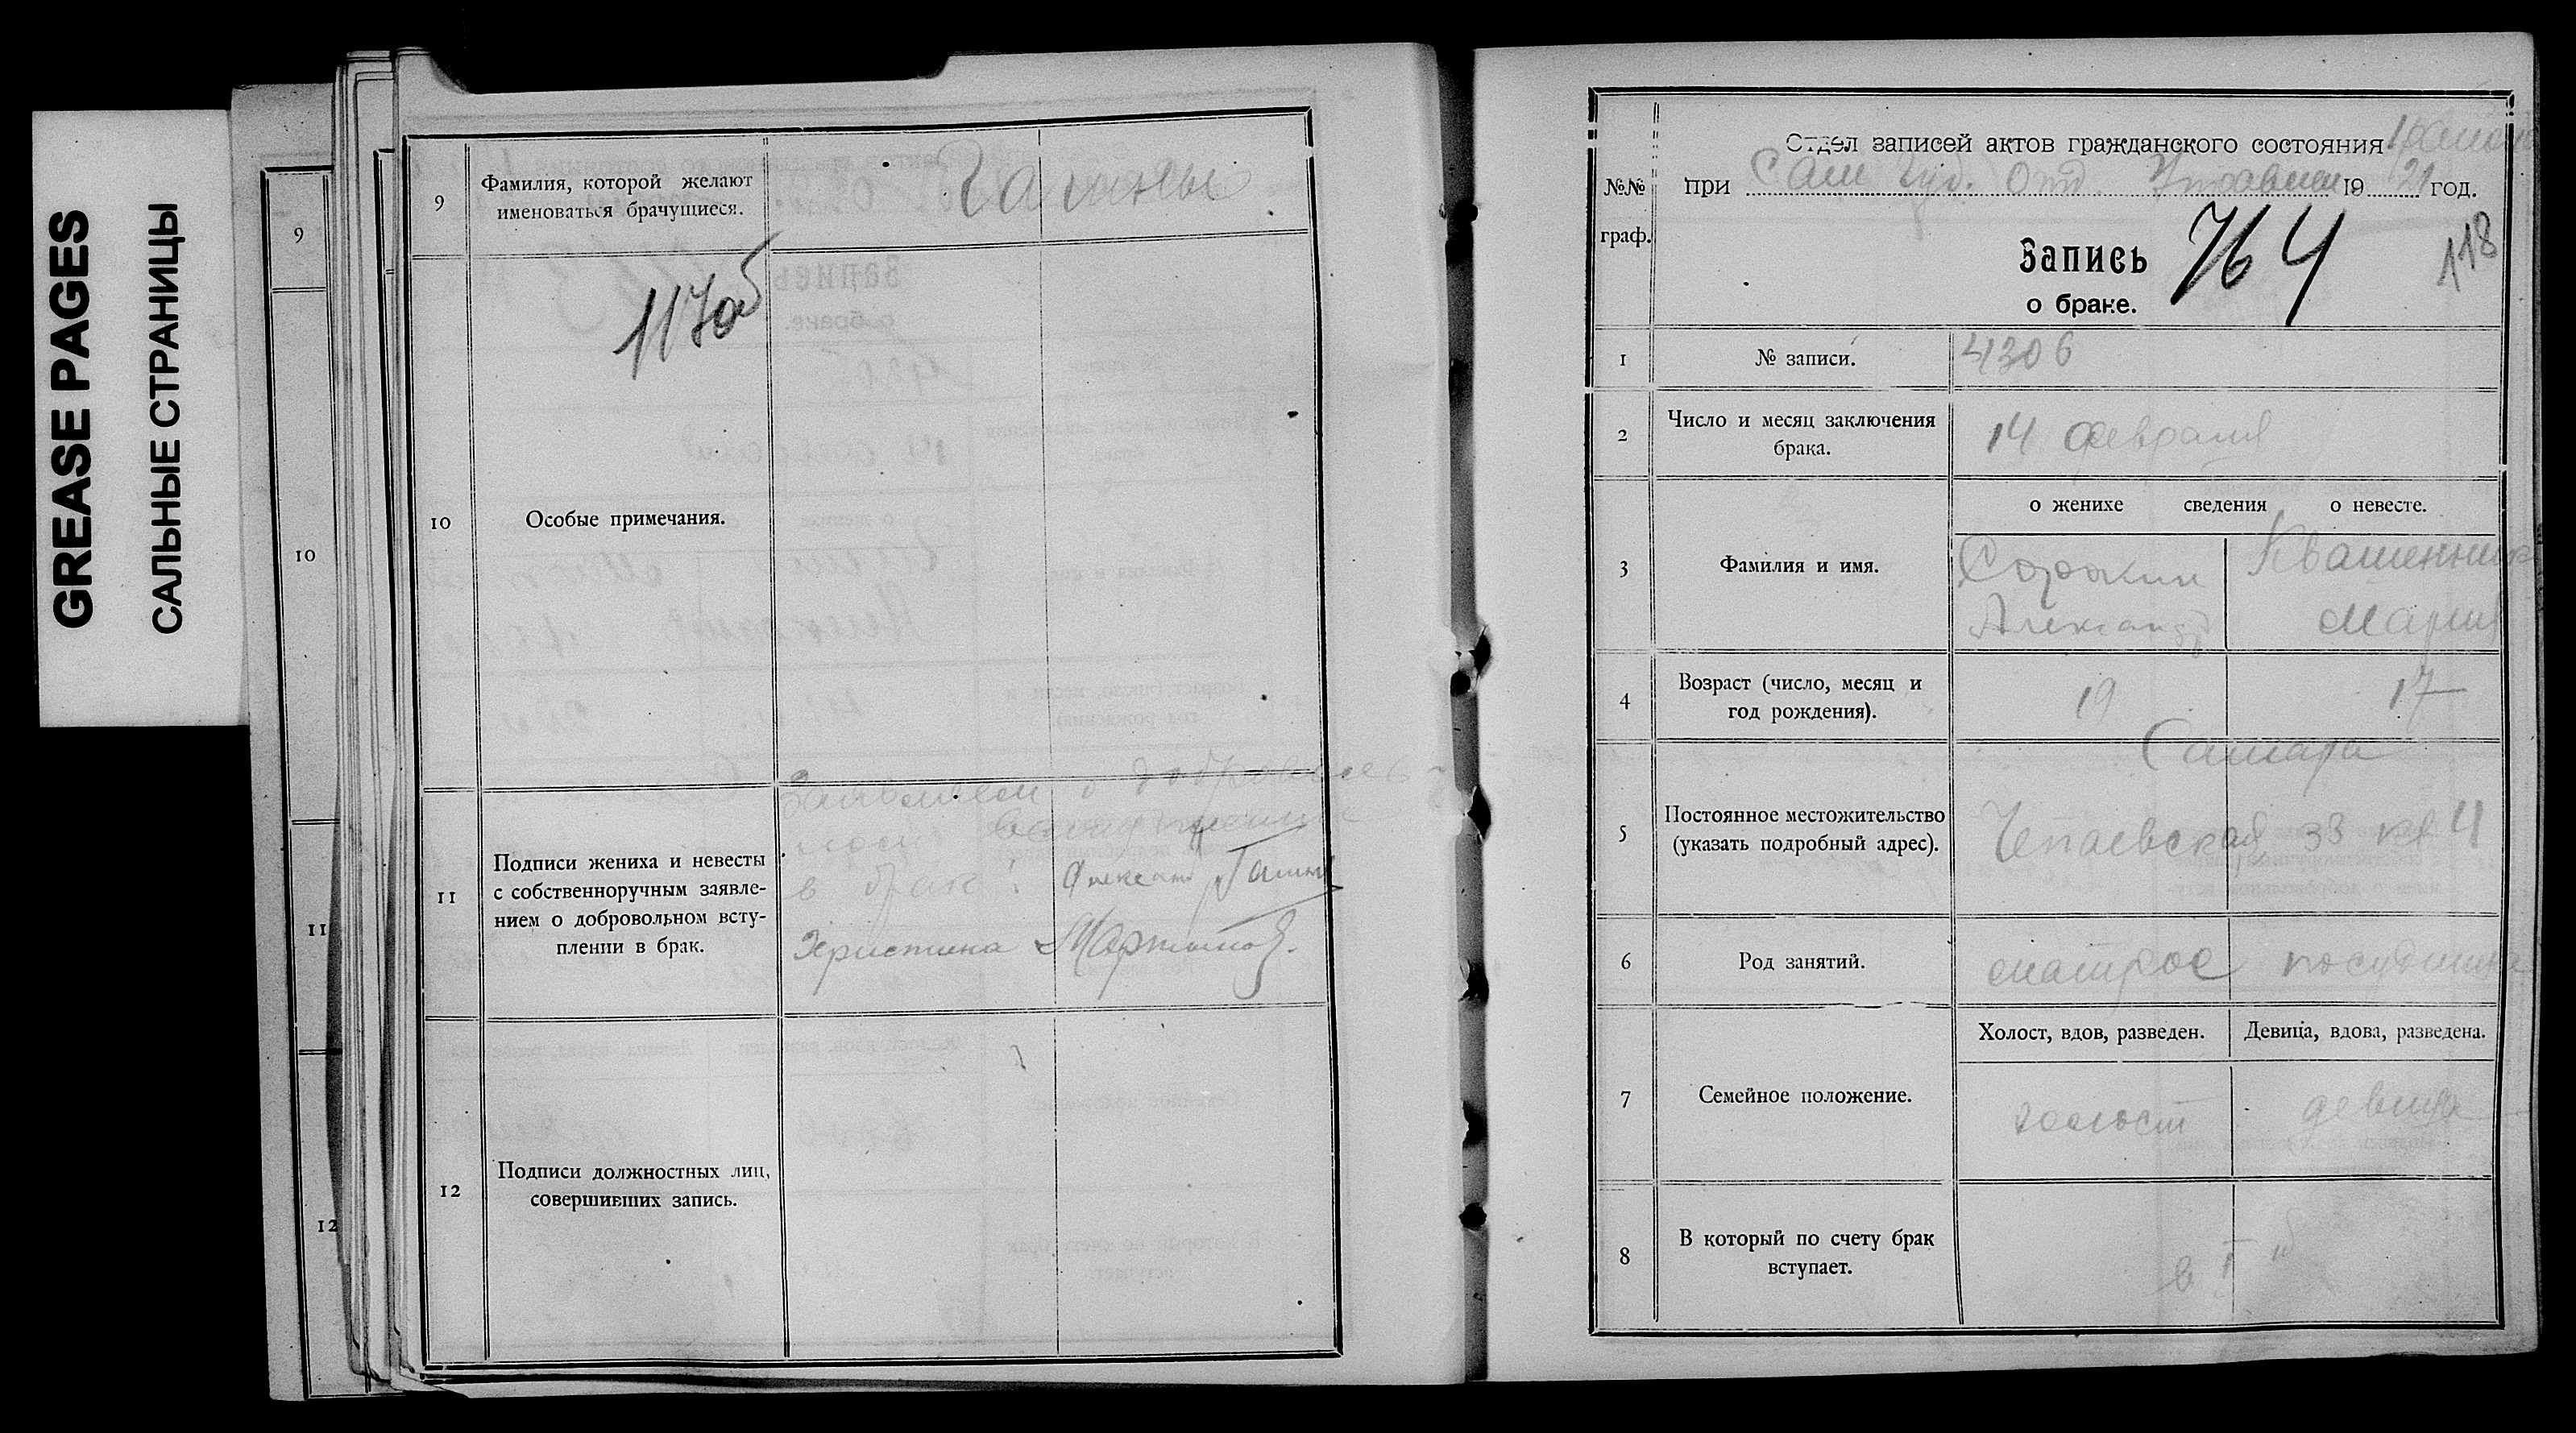 GREASE PAGES
САЛЬНЫЕ СТРАНИЦЫ
9
10
11
12
9
Фамилия, которой желают
именоваться брачущиеся.
Галины
117об
10
Особые примечания.
11
Подписи жениха и невесты
с собственноручным заявле-
нием о добровольном всту-
плении в брак.
Заявляем о
в брак:
Христина
12
Подписи должностных лиц,
совершивших запись.
Отдел записей актов гражданского состояния
при Сам Губ. Отд. Управлен 1921 год.
№№
граф.
Запись 764
о браке.
118
1
№ записи.
4306
2
Число и месяц заключения
брака.
14 февраля
о женихе сведения о невесте.
3
Фамилия и имя.
Сорокин
Александр
Квашенник
Мария
4
Возраст (число, месяц и
год рождения).
19
17
5
Постоянное местожительство
(указать подробный адрес).
Самара
Чепаевская 33 кв 4
6
Род занятий.
матрос
посудница
7
Семейное положение.
Холост, вдов, разведен.
Девица, вдова, разведена.
холост
девица
8
В который по счету брак
вступает.
в I ый